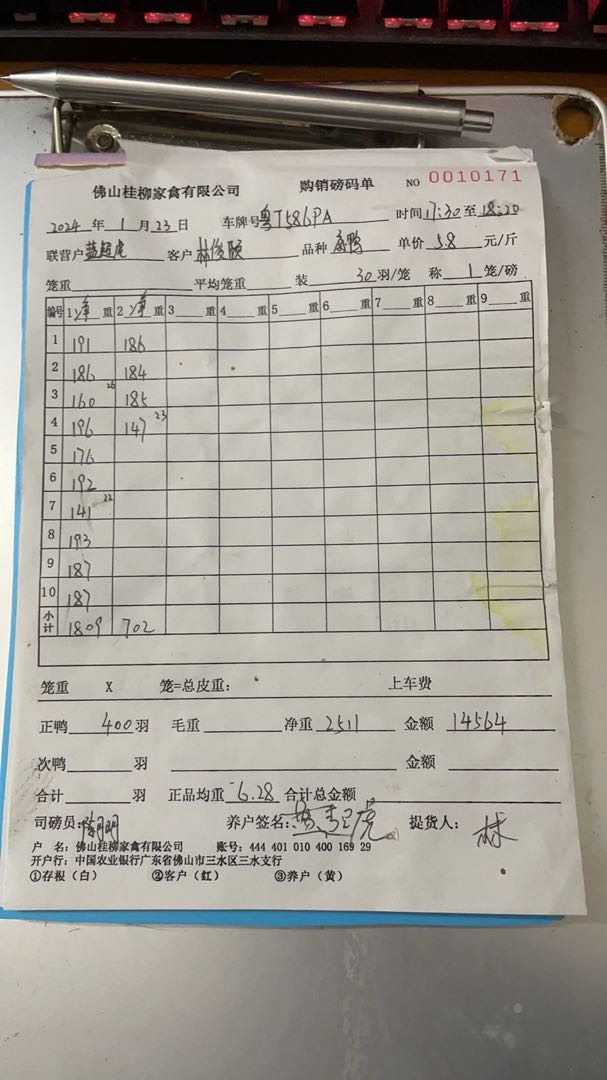 佛山桂柳家禽有限公司 购销磅码单 NO 0010171
2024 年 1 月 23 日 车牌号 粤T586PA 时间 17:30 至 18:20
联营户 蓝超虎 客户 林俊颐 品种 单价 5.8 元/斤
笼重 平均笼重 装 30 羽/笼 称 1 笼/磅
编号 1 净 重 2 净 重 3 重 4 重 5 重 6 重 7 重 8 重 9 重
1 191 186
2 186 184
3 160 26 185
4 196 147 23
5 176
6 192
7 141 22
8 193
9 187
10 187
小计 1809 702
笼重 X 笼=总皮重： 上车费
正鸭 400 羽 毛重 净重 2511 金额 14564
次鸭 羽 金额
合计 羽 正品均重 6.28 合计总金额
司磅员: 养户签名: 提货人： 林
户 名：佛山桂柳家禽有限公司 账号：444 401 010 400 169 29
开户行：中国农业银行广东省佛山市三水区三水支行
①存根（白） ②客户（红） ③养户（黄）